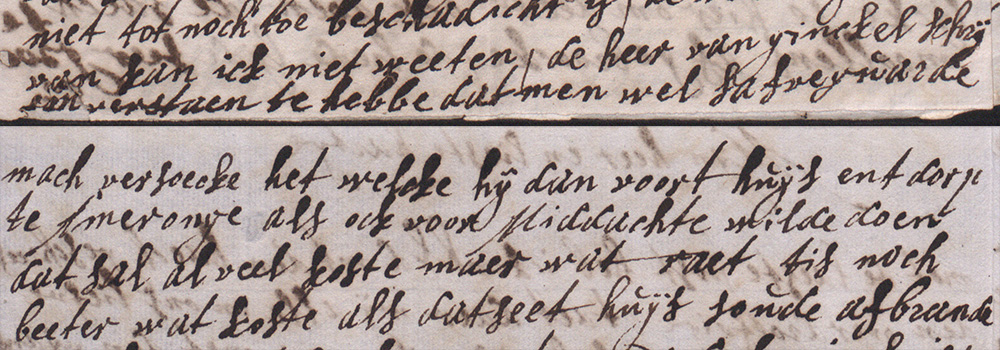 niet tot noch toe beschadicht is, de
van kan ick niet weeten, de heer van ginckel schrij
verstaen te hebbe dat men wel safvegwarde
mach versoecke het welcke hij dan voort huijs ent dorp
te Ameronge als ock voor Middachte wilde doen
dat sal al veel koste maer wat raet tis noch
beeter wat koste als dat heet huijs soude afbrande